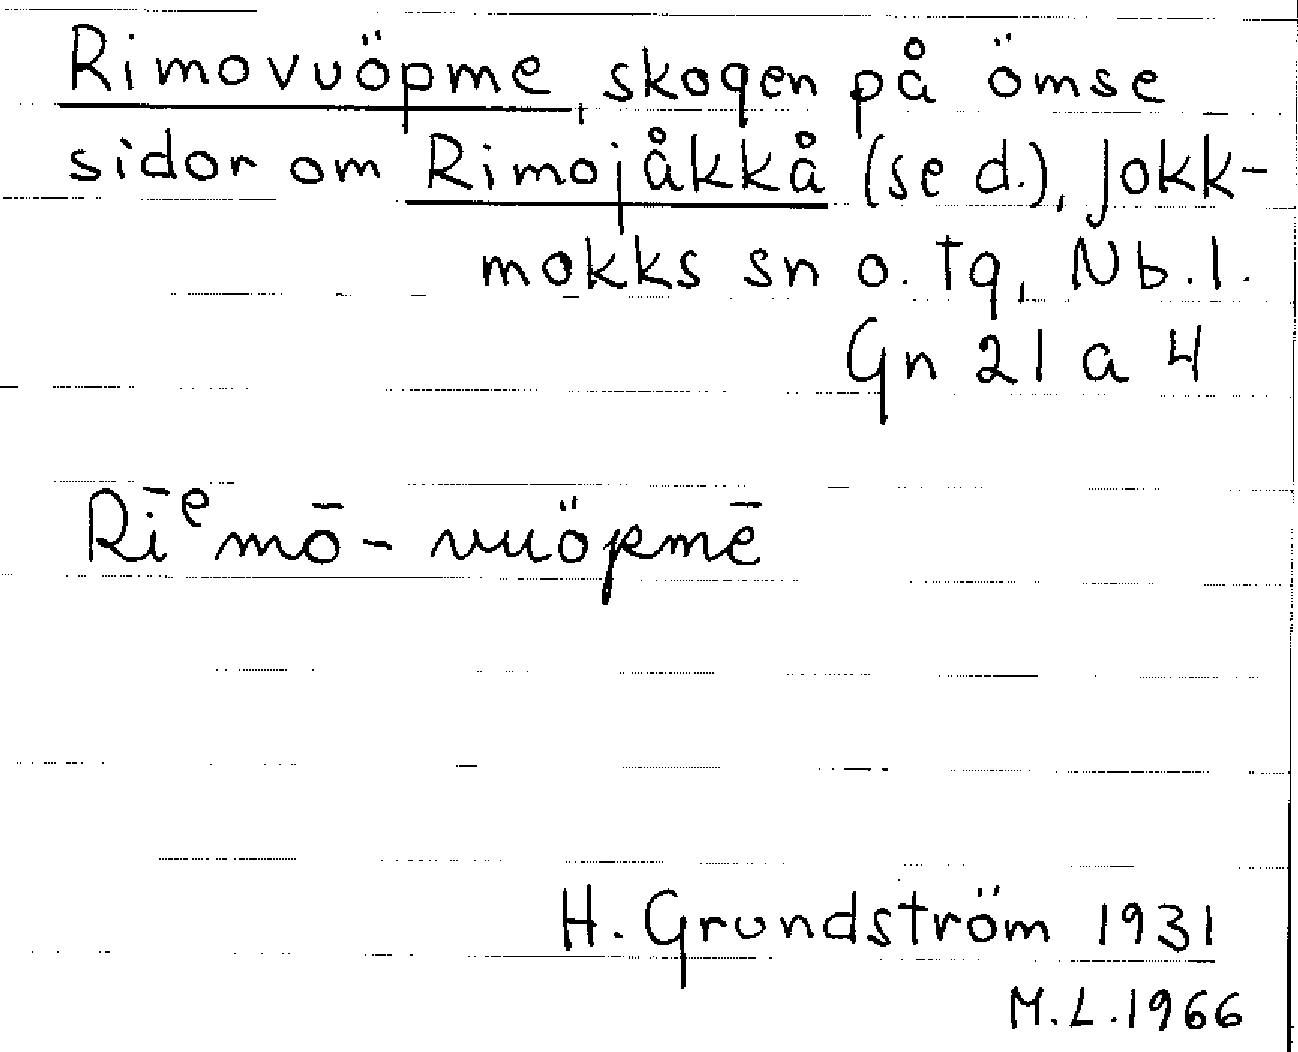 Rimovuöpme, skogen på ömse
sidor om Rimojåkkå (se d.), Jokk-
mokks sn o. tg, Nb. l.
Gn 21 a 4
Rīᵉmō-vuöpmē
H. Grundström 1931
M.L. 1966